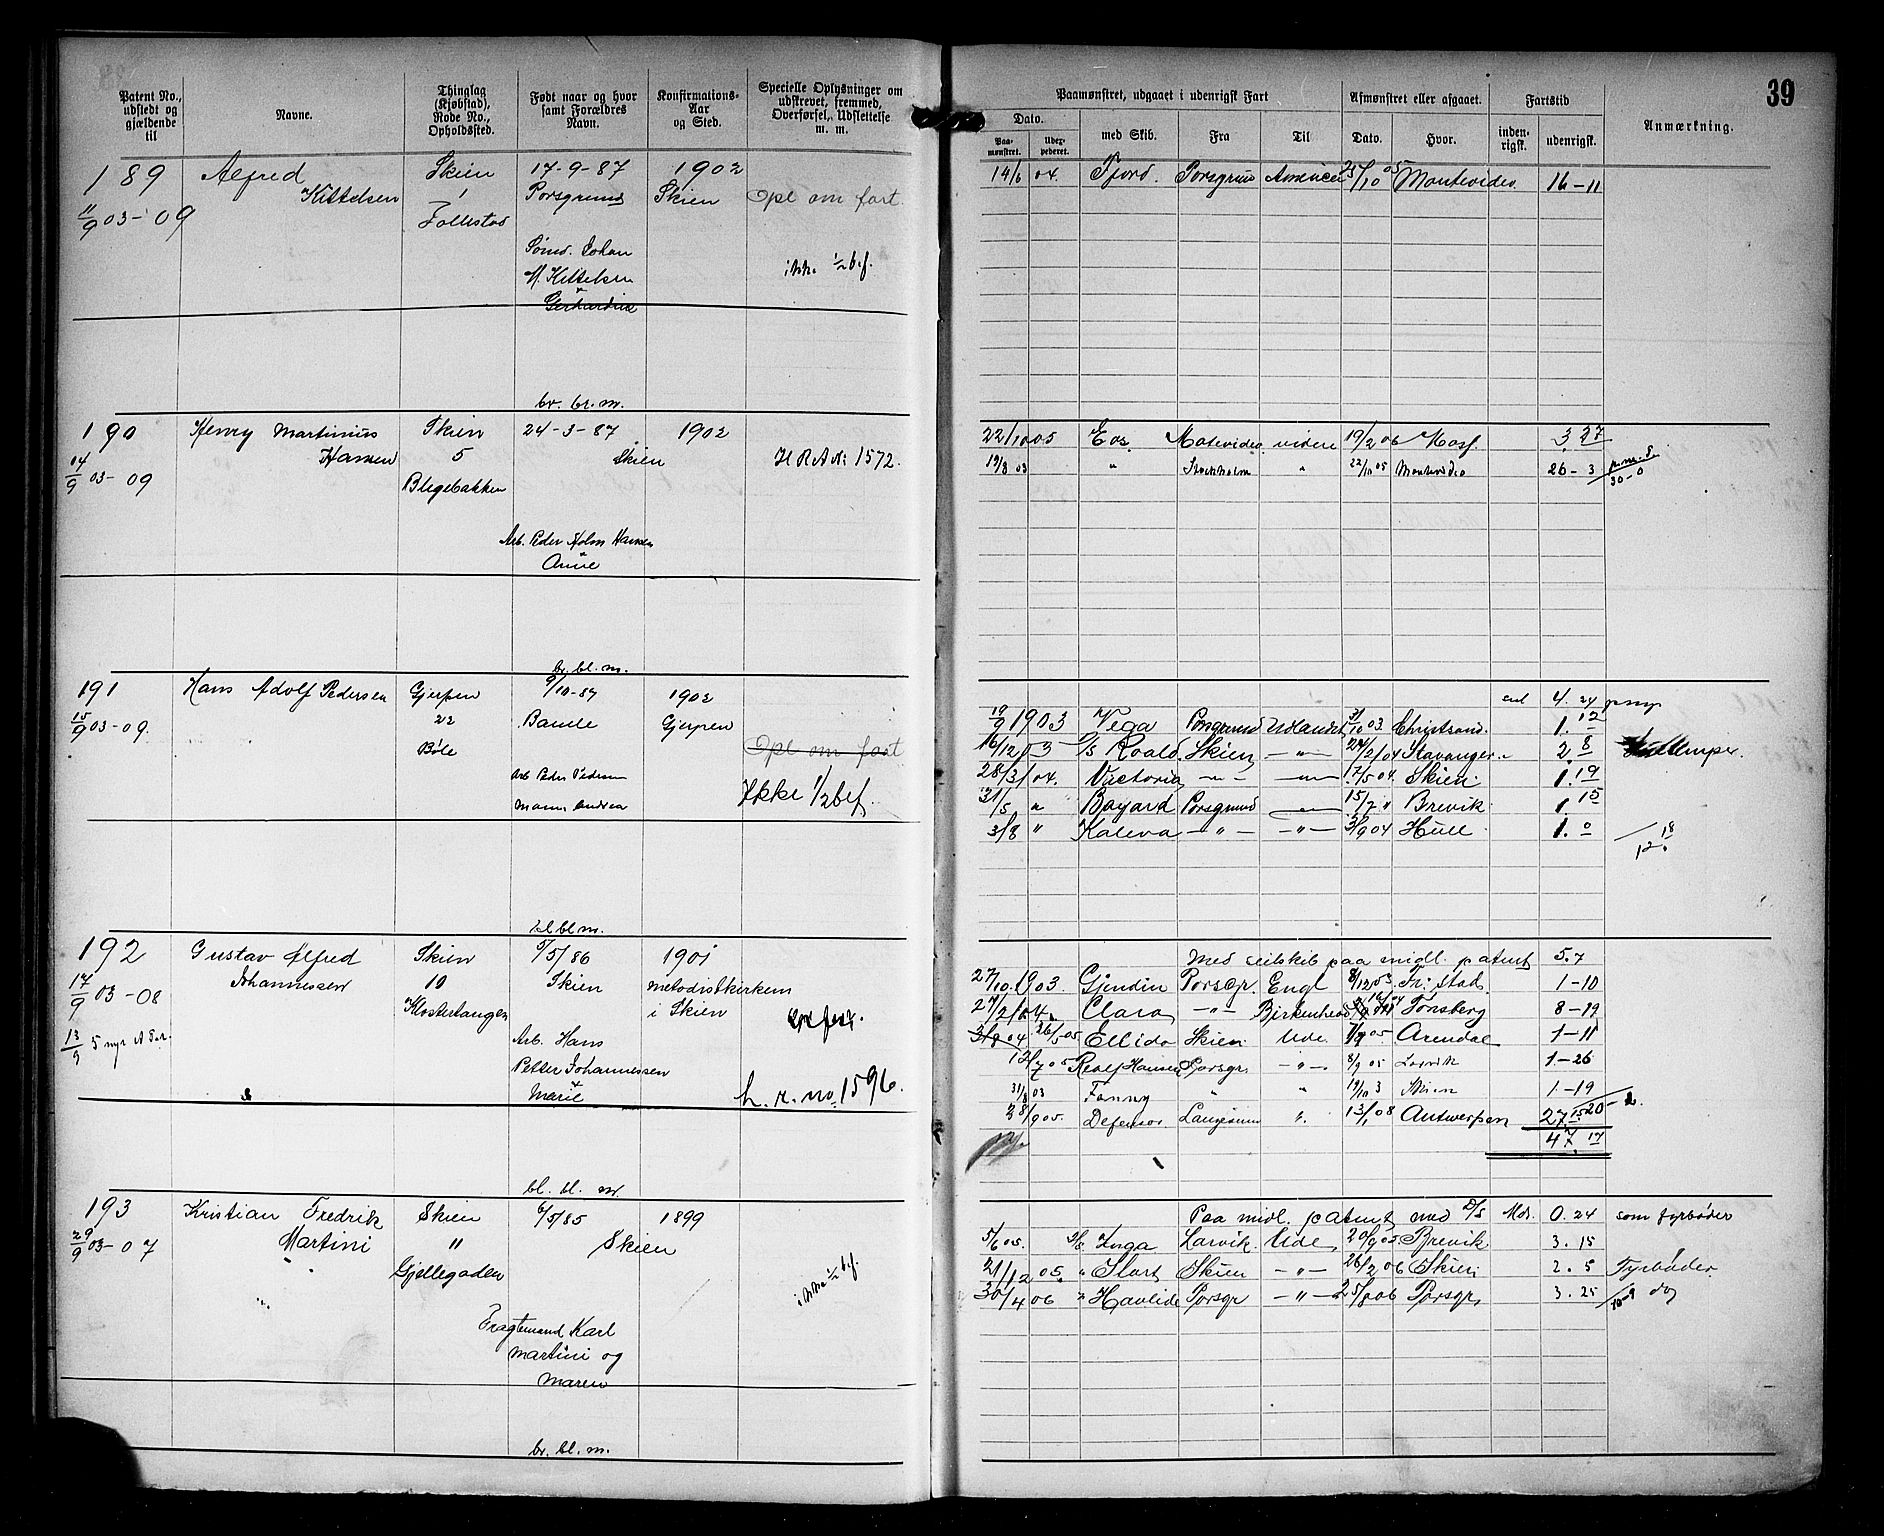 39
Patent No., udstedt og gjældende til
Navne.
Thinglag (Kjøbstad), Rode No., Opholdssted.
Født naar og hvor samt Forældres Navn.
Konfirmations-Aar og Sted.
Specielle Oplysninger om udskrevet, fremmed, Overførsel, Udslettelse m. m.
Paamønstret, udgaaet i udenrigsk Fart
Afmønstret eller afgaaet.
Fartstid
Anmærkning.
Dato.
Paa-mønstret.
med Skib.
Fra
Til
Dato.
Hvor.
inden-rigsk.
udenrigsk.
189 Alfred Skien 17-9-87 1902
Kittelsen 1 Porsgrund Skien Opl om fart.
11/9 03-09 Follestad
Sømd. Johan
M. Kittelsen ikke 1/2 bef.
Gerhardine
14/6 04. Fjord. Porsgrun 25/10 05 Montevideo 16-11
br. br. m.
190 Henry Martinius Skien 24-3-87 1902
Hansen 5 Skien H R A No 1572.
14/9 03-09 Blegebakken
Arb. Peder Holm Hansen
Anne
22/10 05 Eos. Motevideo videre 19/2 06 3 27
19/8 03 " Stockholm " 22/10 05 Montevideo 26-3
30-0
br. bl. m.
191 Hans Adolf Pedersen Gjerpen 9/10-87 1902
15/9 03-09. 22 Bamle Gjerpen
Bøle Opl om fart
Arb Peder Pedersen
Maren Andrea Ikke 1/2 bef.
4. 24
19/9 1903 Vega Porsgrund Udlandet 31/10 03. Christsand. 1. 12
16/12 03 D/S Roald. Skien -"- 24/2 04 Stavanger 2. 8
28/3 04. Victoria -"- -"- 17/5 04. Skien. 1. 19
31/5 " Bayard Porsgrund -"- 15/7 " Brevik. 1. 15
3/8 " Kaleva -"- -"- 3/9 04 Hull. 1. 0
12. 18
bl. bl. m.
192 Gustav Alfred Skien 5/5/86 1901
Johannessen 10 Skien metodistkirken
17/9 03-08 Klosterhaugen i Skien
13/9 5 nyr A Par. Arb. Hans
Petter Johannessen
Marie h. r. no. 1596.
Med seilskib paa midl. patent 5. 7
27/10. 1903. Gjendin Porsgr. Engl 8/12 03 Fr: stad. 1-10
27/2 04. Clara -"- Birkenhead Tønsberg 8-29
3/8 04 26/5 05 Ellida Skien Udl. 7/7 05 Arendal 1-11
12/7 05 Rolf Hansen Porsgr. -"- 8/9 05 Larvik 1-26
31/8 03 Fanny " " 19/10 3 Skien 1-19
28/9 05. Defensor Langesund ". 13/1 08 Antwerpen 27. 15
47. 17
bl. bl. m.
193 Kristian Fredrik Skien 6/5/85 1899
Martini 11 Skien
29/9 03-07 Gjellegaden
ikke 1/2 bef.
Fragtemand Karl
Martini og
Maren
Paa midl. patent med D/S Mds. 0. 24 som fyrbøder
5/6 05. D/S Inga Larvik. Udl. 20/9 05 Brevik 3. 15
21/12 05. " Start Skien -"- 26/2 06 Skien 2. 5 Fyrbøder
30/4 06 " Havlide Porsgr -"- 25/8 06 Porsgr. 3. 25 10-9 do
br. bl. m.